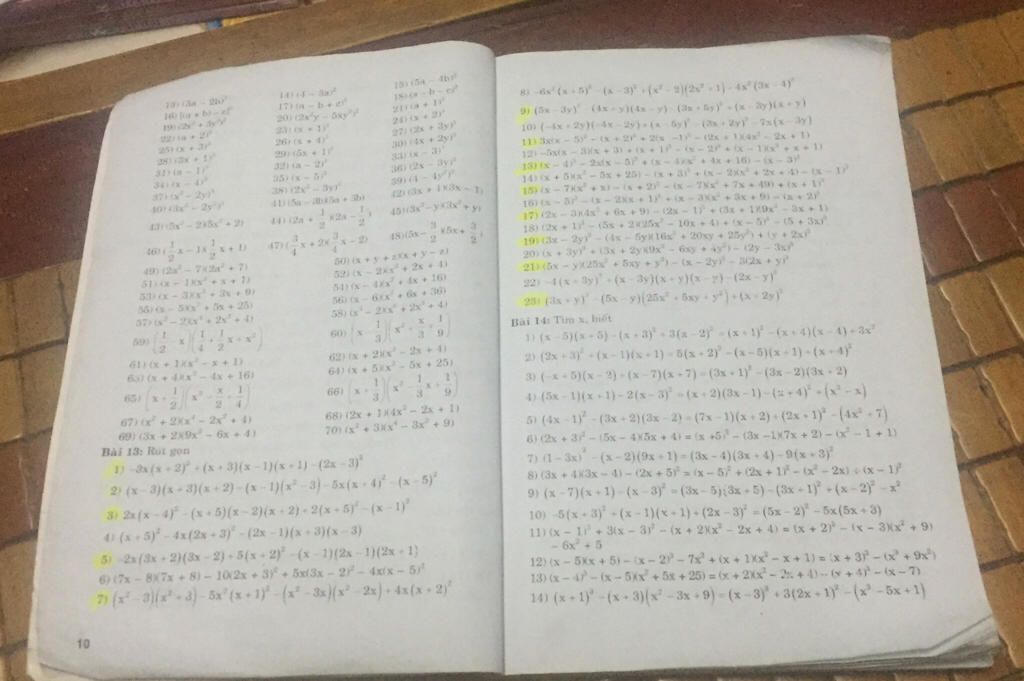 13) (3a − 2b)²
14) (4 − 3a)²
15) (5a − 4b)²
16) (a + b) − c]²
17) (a − b + c)²
18) (a − b − c)²
19) (2x² + 3y³)²
20) (2x²y − 5xy²)²
21) (a + 1)³
22) (a + 2)³
23) (x + 1)³
24) (x + 2)³
25) (x + 3)³
26) (x + 4)³
27) (2x + 3y)³
28) (3x + 1)³
29) (5x + 1)³
30) (4x + 2y)³
31) (a − 1)³
32) (a − 2)³
33) (x − 3)³
34) (x − 4)³
35) (x − 5)³
36) (2x − 3y)³
37) (x² − 2y)³
38) (2x² − 3y)³
39) (4 − 4y²)³
40) (3x² − 2y²)³
41) (5a − 3b)(5a + 3b)
42) (3x + 1)(3x − 1)
43) (5x² − 2)(5x² + 2)
44) (2a + 1/2)(2a − 1/2)
45) (3x² − y)(3x² + y)
46) (1/2 x − 1)(1/2 x + 1)
47) (3/4 x + 2)(3/4 x − 2)
48) (5x − 3/2)(5x + 3/2)
49) (2a² − 7)(2a² + 7)
50) (x + y + z)(x + y − z)
51) (x − 1)(x² + x + 1)
52) (x − 2)(x² + 2x + 4)
53) (x − 3)(x² + 3x + 9)
54) (x − 4)(x² + 4x + 16)
55) (x − 5)(x² + 5x + 25)
56) (x − 6)(x² + 6x + 36)
57) (x² − 2)(x⁴ + 2x² + 4)
58) (x² − 2)(x⁴ + 2x² + 4)
59) (1/2 − x)(1/4 + 1/2 x + x²)
60) (x − 1/3)(x² + x/3 + 1/9)
61) (x + 1)(x² − x + 1)
62) (x + 2)(x² − 2x + 4)
63) (x + 4)(x² − 4x + 16)
64) (x + 5)(x² − 5x + 25)
65) (x + 1/2)(x² − x/2 + 1/4)
66) (x + 1/3)(x² − 1/3 x + 1/9)
67) (x² + 2)(x⁴ − 2x² + 4)
68) (2x + 1)(4x² − 2x + 1)
69) (3x + 2)(9x² − 6x + 4)
70) (x² + 3)(x⁴ − 3x² + 9)
Bài 13: Rút gọn
1) −3x(x + 2)² + (x + 3)(x − 1)(x + 1) − (2x − 3)²
2) (x − 3)(x + 3)(x + 2) − (x − 1)(x² − 3) − 5x(x + 4)² − (x − 5)²
3) 2x(x − 4)² − (x + 5)(x − 2)(x + 2) + 2(x + 5)² − (x − 1)²
4) (x + 5)² − 4x(2x + 3)² − (2x − 1)(x + 3)(x − 3)
5) −2x(3x + 2)(3x − 2) + 5(x + 2)² − (x − 1)(2x − 1)(2x + 1)
6) (7x − 8)(7x + 8) − 10(2x + 3)² + 5x(3x − 2)² − 4x(x − 5)²
7) (x² − 3)(x² + 3) − 5x²(x + 1)² − (x² − 3x)(x² − 2x) + 4x(x + 2)²
10
8) −6x²(x + 5)² − (x − 3)² + (x² − 2)(2x² + 1) − 4x²(3x − 4)²
9) (5x − 3y)² − (4x + y)(4x − y) − (3x + 5y)² + (x − 3y)(x + y)
10) (−4x + 2y)(−4x − 2y) + (x − 5y)² − (3x + 2y)² − 7x(x − 3y)
11) 3x(x − 5)² − (x + 2)³ + 2(x − 1)³ − (2x + 1)(4x² − 2x + 1)
12) −5x(x − 3)(x + 3) + (x + 1)³ − (x − 2)³ + (x − 1)(x² + x + 1)
13) (x − 4)³ − 2x(x − 5)² + (x − 4)(x² + 4x + 16) − (x − 3)³
14) (x + 5)(x² − 5x + 25) − (x + 3)³ + (x − 2)(x² + 2x + 4) − (x − 1)³
15) (x − 7)(x² + x) − (x + 2)³ − (x − 7)(x² + 7x + 49) + (x + 1)³
16) (x − 5)³ − (x − 2)(x + 1)² + (x − 3)(x² + 3x + 9) − (x + 2)³
17) (2x − 3)(4x² + 6x + 9) − (2x − 1)³ + (3x + 1)(9x² − 3x + 1)
18) (2x + 1)³ − (5x + 2)(25x² − 10x + 4) + (x − 5)³ − (5 + 3x)³
19) (3x − 2y)³ − (4x − 5y)(16x² + 20xy + 25y²) + (y + 2x)³
20) (x + 3y)³ + (3x + 2y)(9x² − 6xy + 4y²) − (2y − 3x)³
21) (5x − y)(25x² + 5xy + y²) − (x − 2y)³ − 3(2x + y)³
22) −4(x + 3y)³ + (x − 3y)(x + y)(x − y) − (2x − y)³
23) (3x + y)³ − (5x − y)(25x² + 5xy + y²) + (x + 2y)³
Bài 14: Tìm x, biết
1) (x − 5)(x + 5) − (x + 3)² + 3(x − 2)² = (x + 1)² − (x + 4)(x − 4) + 3x²
2) (2x + 3)² + (x − 1)(x + 1) = 5(x + 2)² − (x − 5)(x + 1) + (x + 4)²
3) (−x + 5)(x − 2) + (x − 7)(x + 7) = (3x + 1)² − (3x − 2)(3x + 2)
4) (5x − 1)(x + 1) − 2(x − 3)² = (x + 2)(3x − 1) − (x + 4)² + (x² − x)
5) (4x − 1)² − (3x + 2)(3x − 2) = (7x − 1)(x + 2) + (2x + 1)² − (4x² + 7)
6) (2x + 3)² − (5x − 4)(5x + 4) = (x + 5)² − (3x − 1)(7x + 2) − (x² − 1 + 1)
7) (1 − 3x)² − (x − 2)(9x + 1) = (3x − 4)(3x + 4) − 9(x + 3)²
8) (3x + 4)(3x − 4) − (2x + 5)² = (x − 5)² + (2x + 1)² − (x² − 2x) + (x − 1)²
9) (x − 7)(x + 1) − (x − 3)² = (3x − 5)(3x + 5) − (3x + 1)² + (x − 2)² − x²
10) −5(x + 3)² + (x − 1)(x + 1) + (2x − 3)² = (5x − 2)² − 5x(5x + 3)
11) (x − 1)³ + 3(x − 3)² − (x + 2)(x² − 2x + 4) = (x + 2)³ − (x − 3)(x² + 9)
− 6x² + 5
12) (x − 5)(x + 5) − (x − 2)³ − 7x² + (x + 1)(x² − x + 1) = (x + 3)³ − (x³ + 9x²)
13) (x − 4)³ − (x − 5)(x² + 5x + 25) = (x + 2)(x² − 2x + 4) − (x + 4)³ − (x − 7)
14) (x + 1)³ − (x + 3)(x² − 3x + 9) = (x − 3)³ + 3(2x + 1)² − (x³ − 5x + 1)